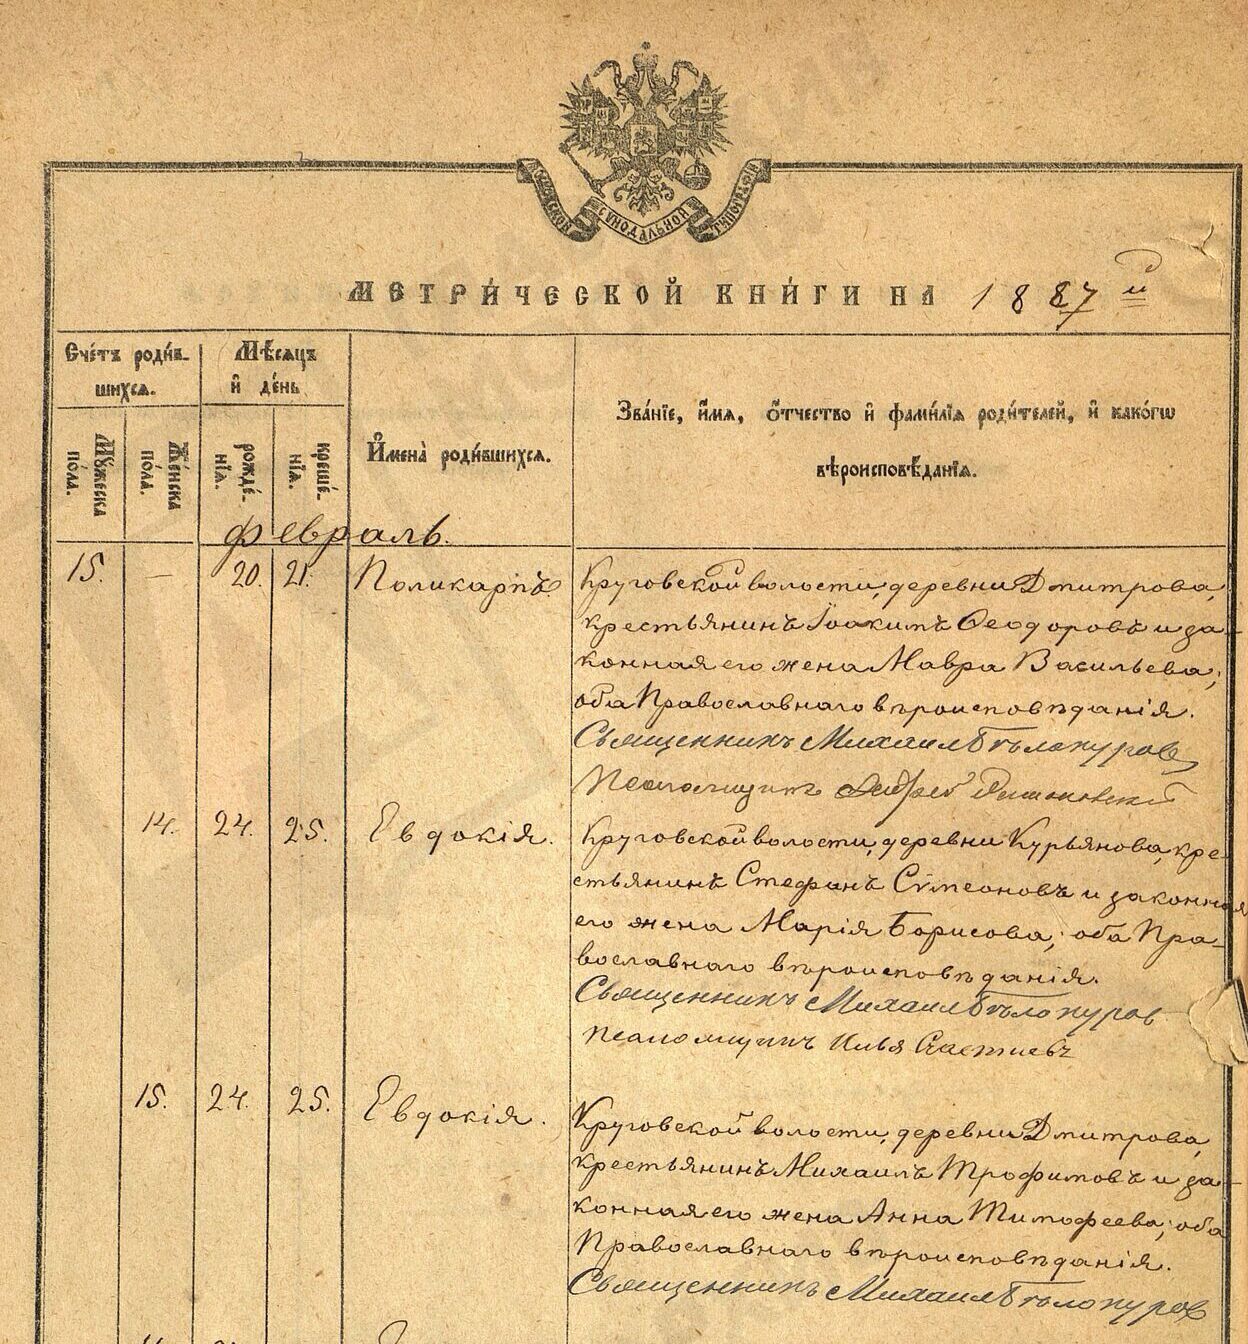 МОСКОВСКОЙ СѴНОДАЛЬНОЙ ТИПОГРАФІИ
МЕТРИ́ЧЕСКОЙ КНИ́ГИ НА 1887 й
Сче́тъ роди́в-
шихся.
Мѣ́сяцъ
и҆ де́нь
Му́жеска по́ла.
Же́нска по́ла.
рожде́-
нїѧ.
креще́-
нїѧ.
И҆мена̀ роди́вшихся.
Зва́нїе, и҆́мя, ѻ҆́тчество и҆ фами́лїѧ роди́телей, и҆ како́гѡ
вѣроисповѣ́данїѧ.
Февраль.
15. — 20. 21. Поликарпъ
Круговской волости, деревни Дмитрова,
крестьянинъ Іоакимъ Ѳеодоровъ и за-
конная его жена Мавра Васильева;
оба Православнаго вѣроисповѣданія.
Священникъ Михаилъ Бѣлокуровъ
Псаломщикъ Андрей
14. 24. 25. Евдокія.
Круговской волости, деревни Курьянова, кре-
стьянинъ Стефанъ Сѵмеоновъ и законная
его жена Марія Борисова; оба Пра-
вославнаго вѣроисповѣданія.
Священникъ Михаилъ Бѣлокуровъ
Псаломщикъ Илья Счастневъ
15. 24. 25. Евдокія.
Круговской волости, деревни Дмитрова,
крестьянинъ Михаилъ Трофимовъ и за-
конная его жена Анна Тимофеева; оба
Православнаго вѣроисповѣданія.
Священникъ Михаилъ Бѣлокуровъ